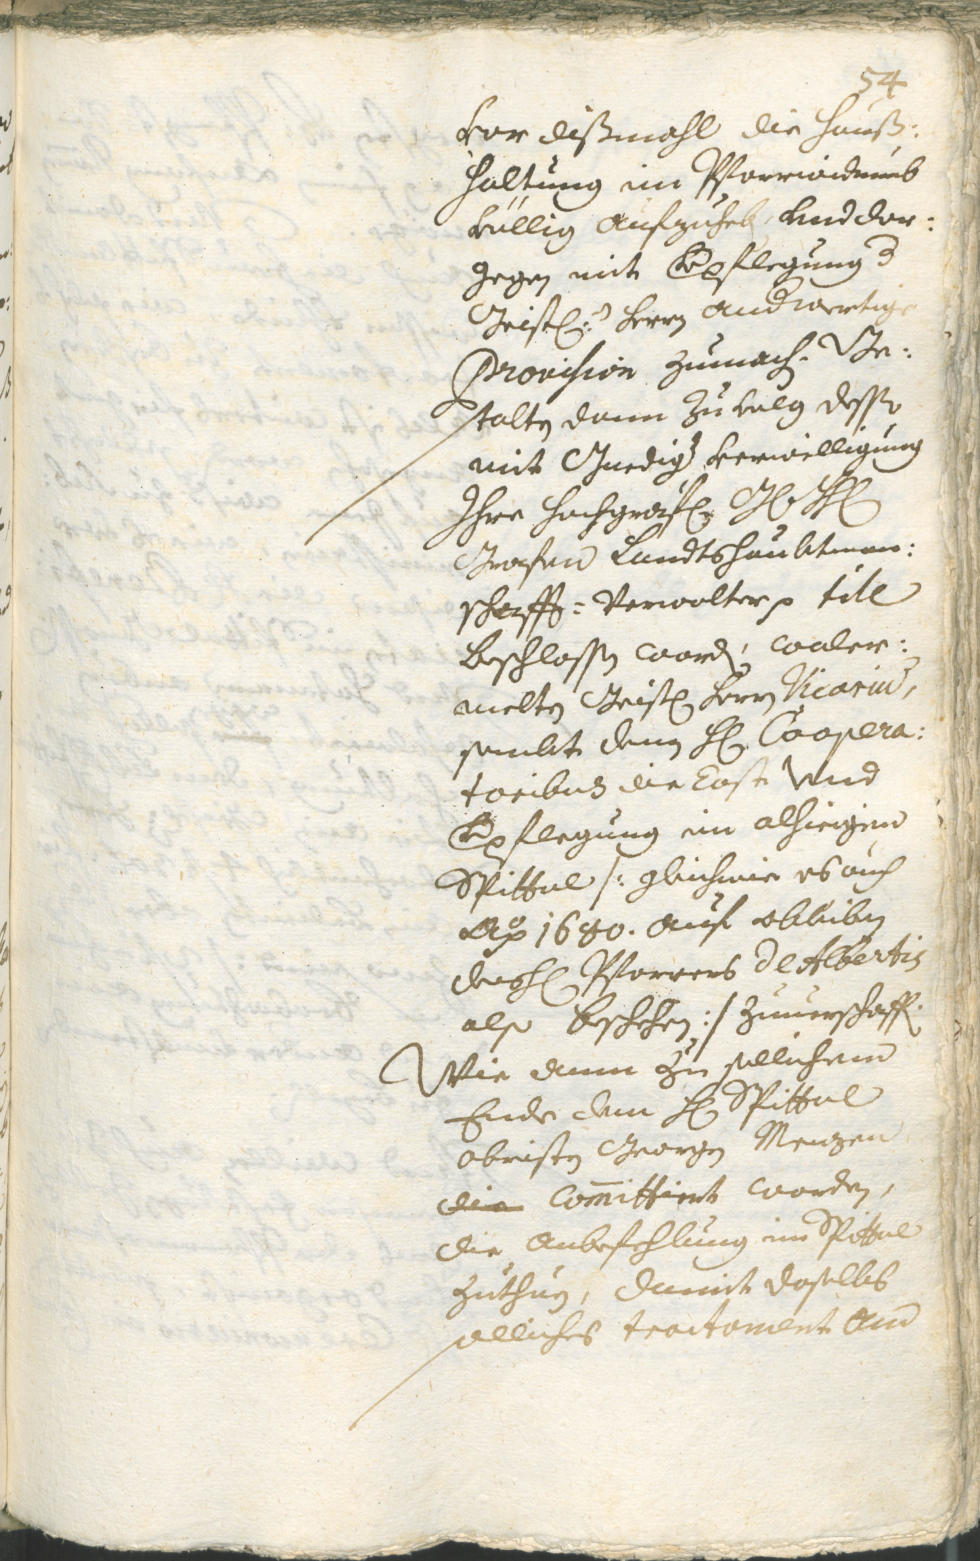 54
vor dißmahl die Hauß:
haltung im Pfarrwidumb
völlig aufzuheb, vnd dar:
gegen mit Verpflegung
Geistl: Herrn andwertige
Provision zumach. Ge:
stalten dann zu volg desse
mit Gnedig verwilligung
Ihro Hochgräfl.
Grafen Landtshaubtman:
schafft=Verwalters title
beschlossen word, woler:
melten Geistl Herrn Vicarin,
sambt denen H Coopera:
toribus die Cost Vnd
Verpflegung im alhieigen
Spittal /: gleichwie es auch
Aō 1680. auf ableiben
des H Pfarrers De Albertis
also beschehen :/ zuuerschaff.
Wie dann zu sollichem
Ende dem H Spittal
obristen Georgen Menzen
die Com̄ittiert worden,
die Anbefehlung im Spittal
zuthuen, damit daselbs
olliches tractament And